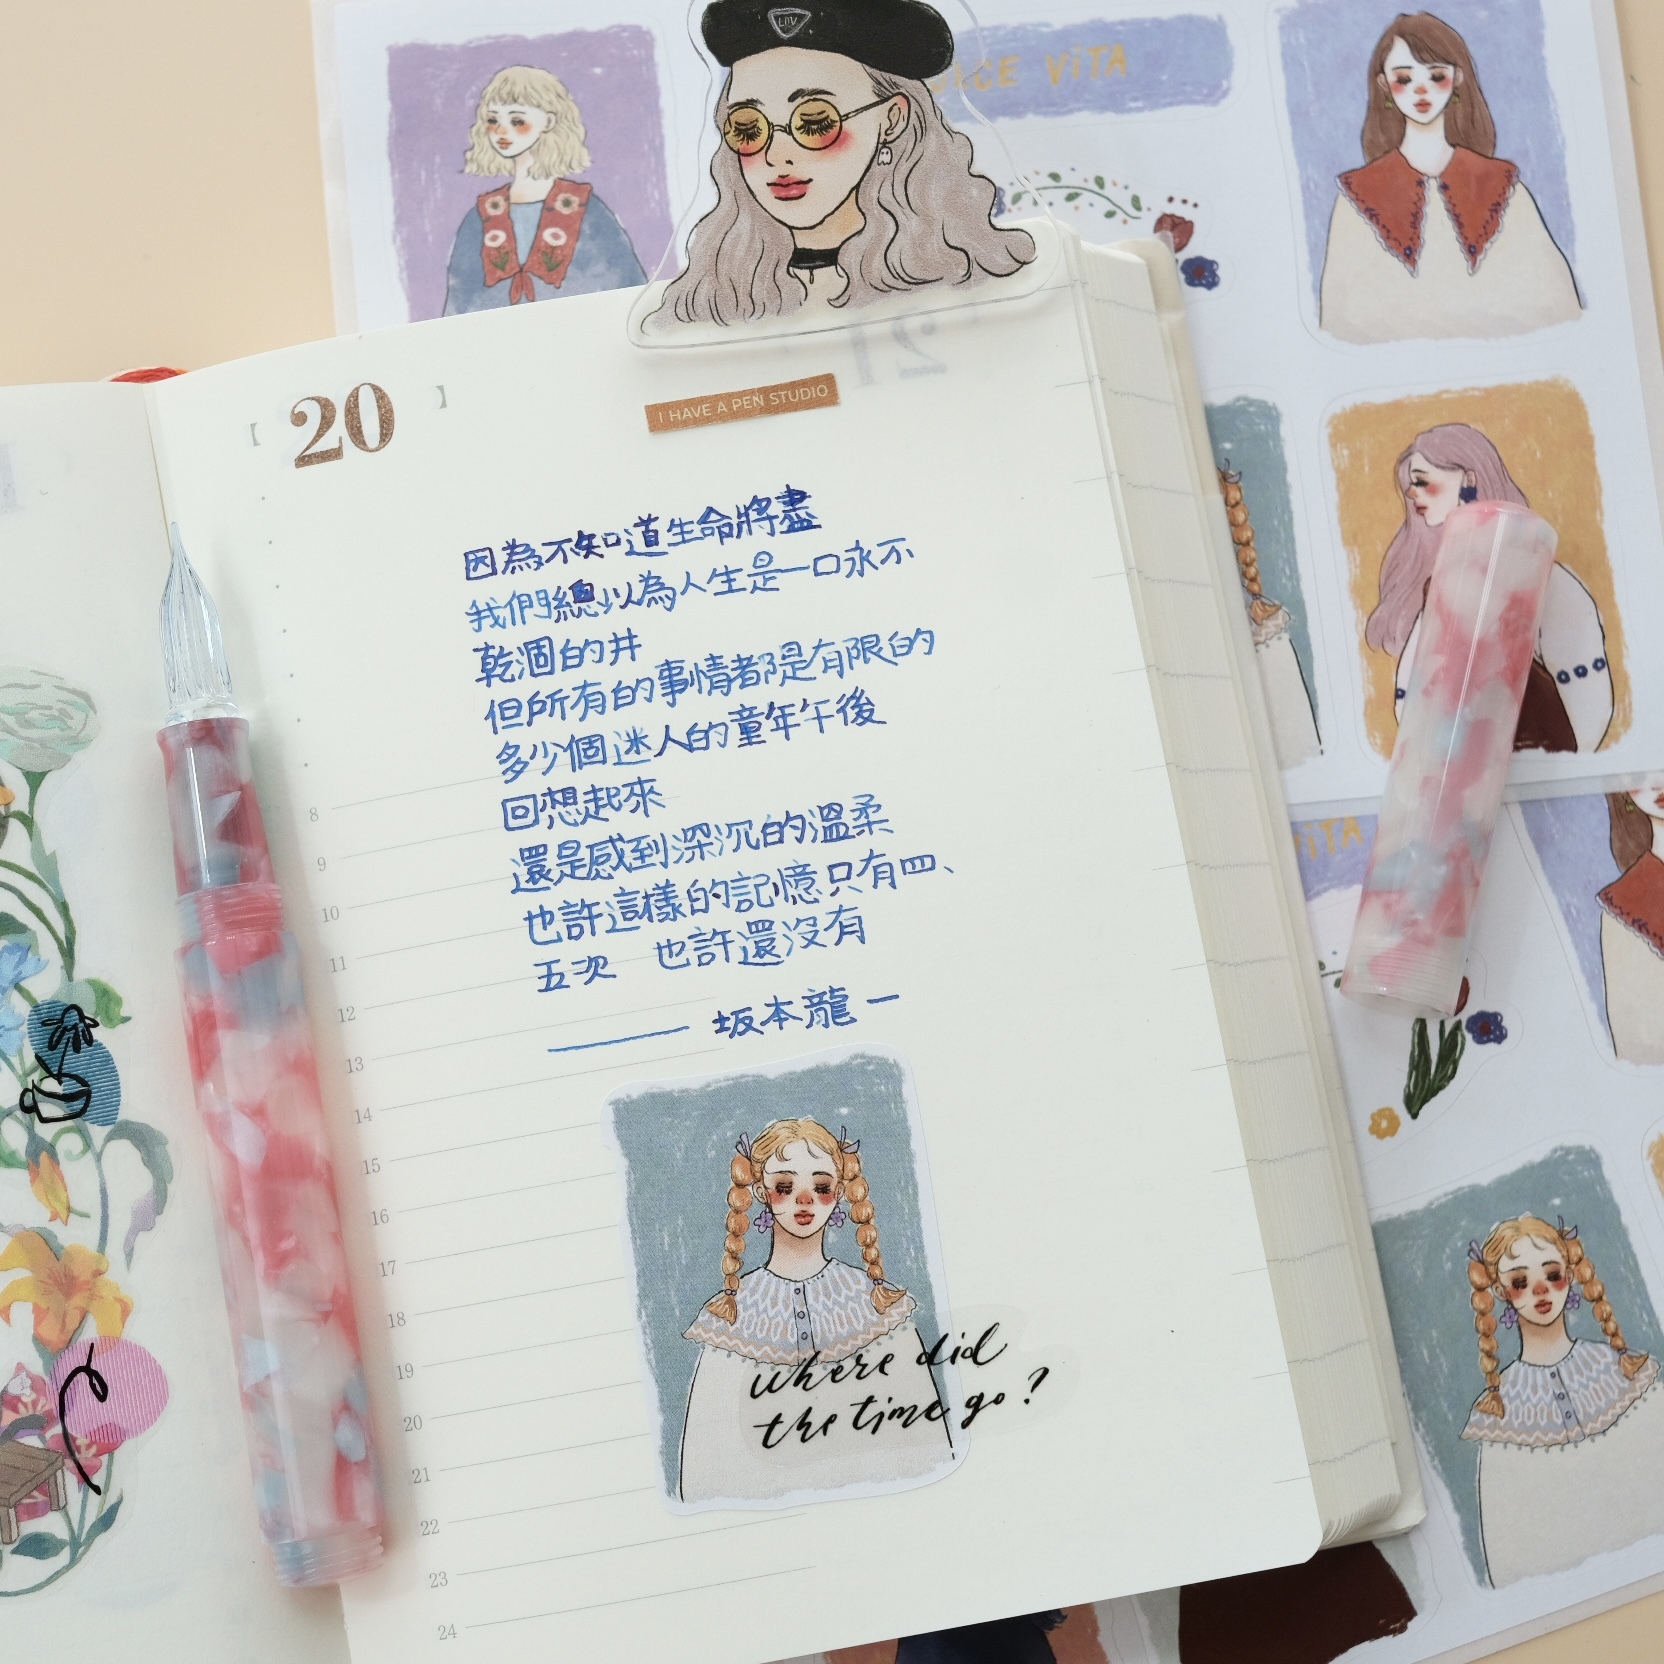 LMV
DOLCE VITA
21
【 20 】
I HAVE A PEN STUDIO
因為不知道生命將盡
我們總以為人生是一口永不
乾涸的井
但所有的事情都是有限的
多少個迷人的童年午後
回想起來
還是感到深沉的溫柔
也許這樣的記憶只有四、
五次 也許還沒有
—— 坂本龍一
8
9
10
11
12
13
14
15
16
17
18
19
20
21
22
23
24
where did
the time go ?
VITA